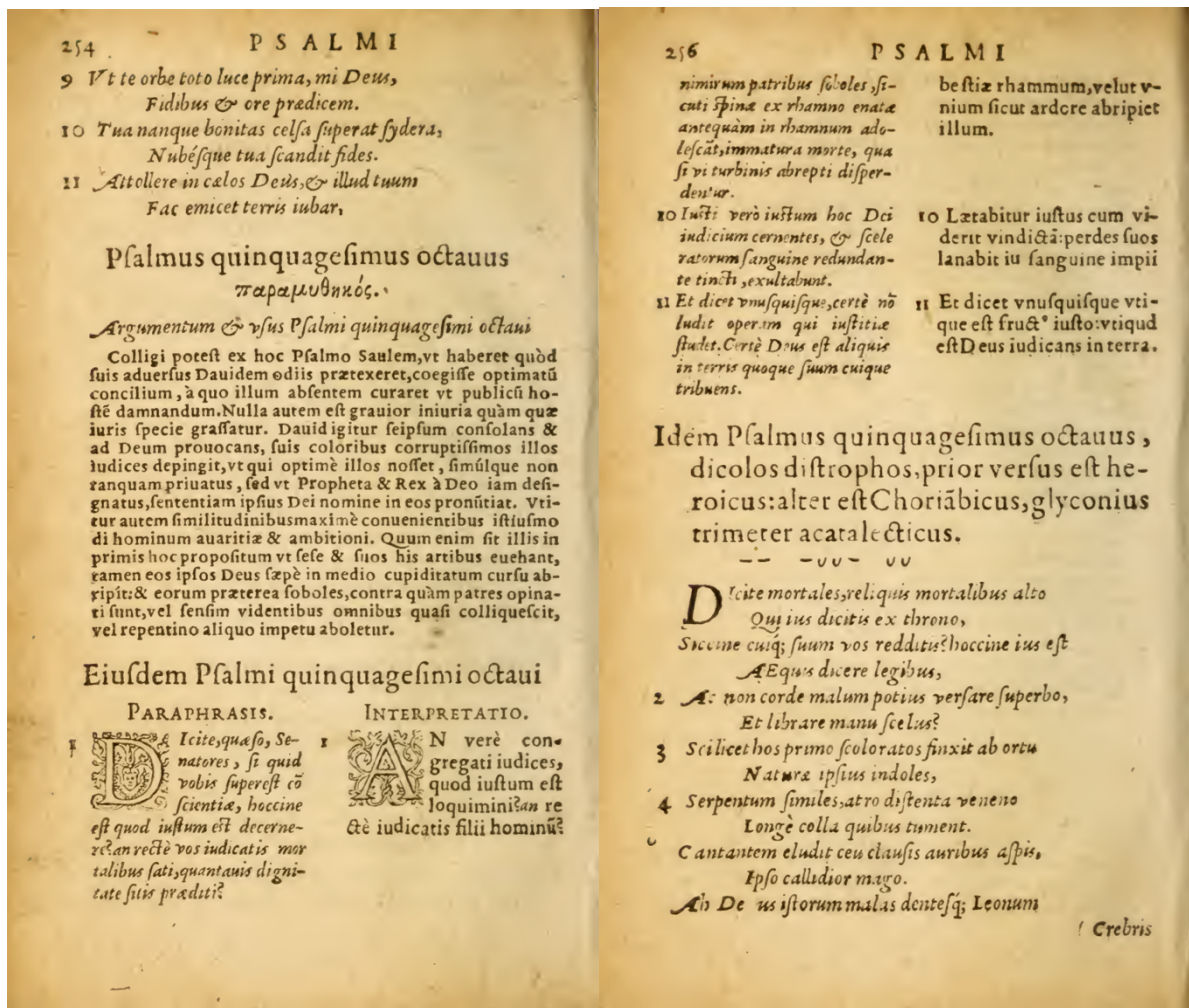 254 PSALMI
9 Vt te orbe toto luce prima, mi Deus,
Fidibus & ore prædicem.
10 Tua nanque bonitas celſa ſuperat ſydera,
Nubéſque tua ſcandit fides.
11 Attollere in cælos Deús,& illud tuum
Fac emicet terris iubar,
Pſalmus quinquageſimus octauus
παραμυθηκός.
Argumentum & vſus Pſalmi quinquageſimi octaui
Colligi poteſt ex hoc Pſalmo Saulem,vt haberet quòd
ſuis aduerſus Dauidem odiis prætexeret,coegiſſe optimatū
concilium, à quo illum abſentem curaret vt publicū ho-
ſtē damnandum.Nulla autem eſt grauior iniuria quàm quæ
iuris ſpecie graſſatur. Dauid igitur ſeipſum conſolans &
ad Deum prouocans, ſuis coloribus corruptiſſimos illos
iudices depingit,vt qui optimè illos noſſet, ſimúlque non
tanquam priuatus, ſed vt Propheta & Rex à Deo iam deſi-
gnatus,ſententiam ipſius Dei nomine in eos pronūtiat. Vti-
tur autem ſimilitudinibusmaximè conuenientibus iſtiuſmo
di hominum auaritiæ & ambitioni. Quum enim ſit illis in
primis hoc propoſitum vt ſeſe & ſuos his artibus euehant,
tamen eos ipſos Deus ſæpè in medio cupiditatum curſu ab-
ripit:& eorum præterea ſoboles,contra quàm patres opina-
ti ſunt,vel ſenſim videntibus omnibus quaſi colliqueſcit,
vel repentino aliquo impetu aboletur.
Eiuſdem Pſalmi quinquageſimi octaui
PARAPHRASIS.
1 DIcite,quæſo, Se-
natores, ſi quid
vobis ſupereſt cō
ſcientiæ, hoccine
eſt quod iuſtum eſt decerne-
re?an rectè vos iudicatis mor
talibus ſati,quantauis digni-
tate ſitis præditi?
INTERPRETATIO.
1 AN verè con-
gregati iudices,
quod iuſtum eſt
loquimini?an re
ctè iudicatis filii hominū?
256 PSALMI
nimirum patribus ſoboles,ſi-
cuti ſpinæ ex rhamno enatæ
antequàm in rhamnum ado-
leſcāt,immatura morte, qua
ſi vi turbinis abrepti diſper-
dentur.
10 Iuſti verò iuſtum hoc Dei
iudicium cernentes, & ſcele
ratorum ſanguine redundan-
te tincti,exultabunt.
11 Et dicet vnuſquiſque,certè nō
ludit operam qui iuſtitiæ
ſtudet.Certè Deus eſt aliquis
in terris quoque ſuum cuique
tribuens.
beſtiæ rhammum,velut v-
nium ſicut ardore abripiet
illum.
10 Lætabitur iuſtus cum vi-
derit vindictā:perdes ſuos
lanabit iu ſanguine impii
11 Et dicet vnuſquiſque vti-
que eſt fruct⁹ iuſto:vtiqud
eſtDeus iudicans in terra.
Idem Pſalmus quinquageſimus octauus,
dicolos diſtrophos,prior verſus eſt he-
roicus:alter eſtChoriābicus,glyconius
trimeter acatalecticus.
-- -υυ- υυ
DIcite mortales,reliquis mortalibus alto
Qui ius dicitis ex throno,
Siccine cuiq; ſuum vos redditis?hoccine ius eſt
ÆEquis dicere legibus,
2 Ac non corde malum potius verſare ſuperbo,
Et librare manu ſcelus?
3 Scilicet hos primo ſcoloratos finxit ab ortu
Naturæ ipſius indoles,
4 Serpentum ſimiles,atro diſtenta veneno
Longè colla quibus tument.
Cantantem eludit ceu clauſis auribus aſpis,
Ipſo callidior mago.
Ah De us iſtorum malas denteſq; Leonum
Crebris